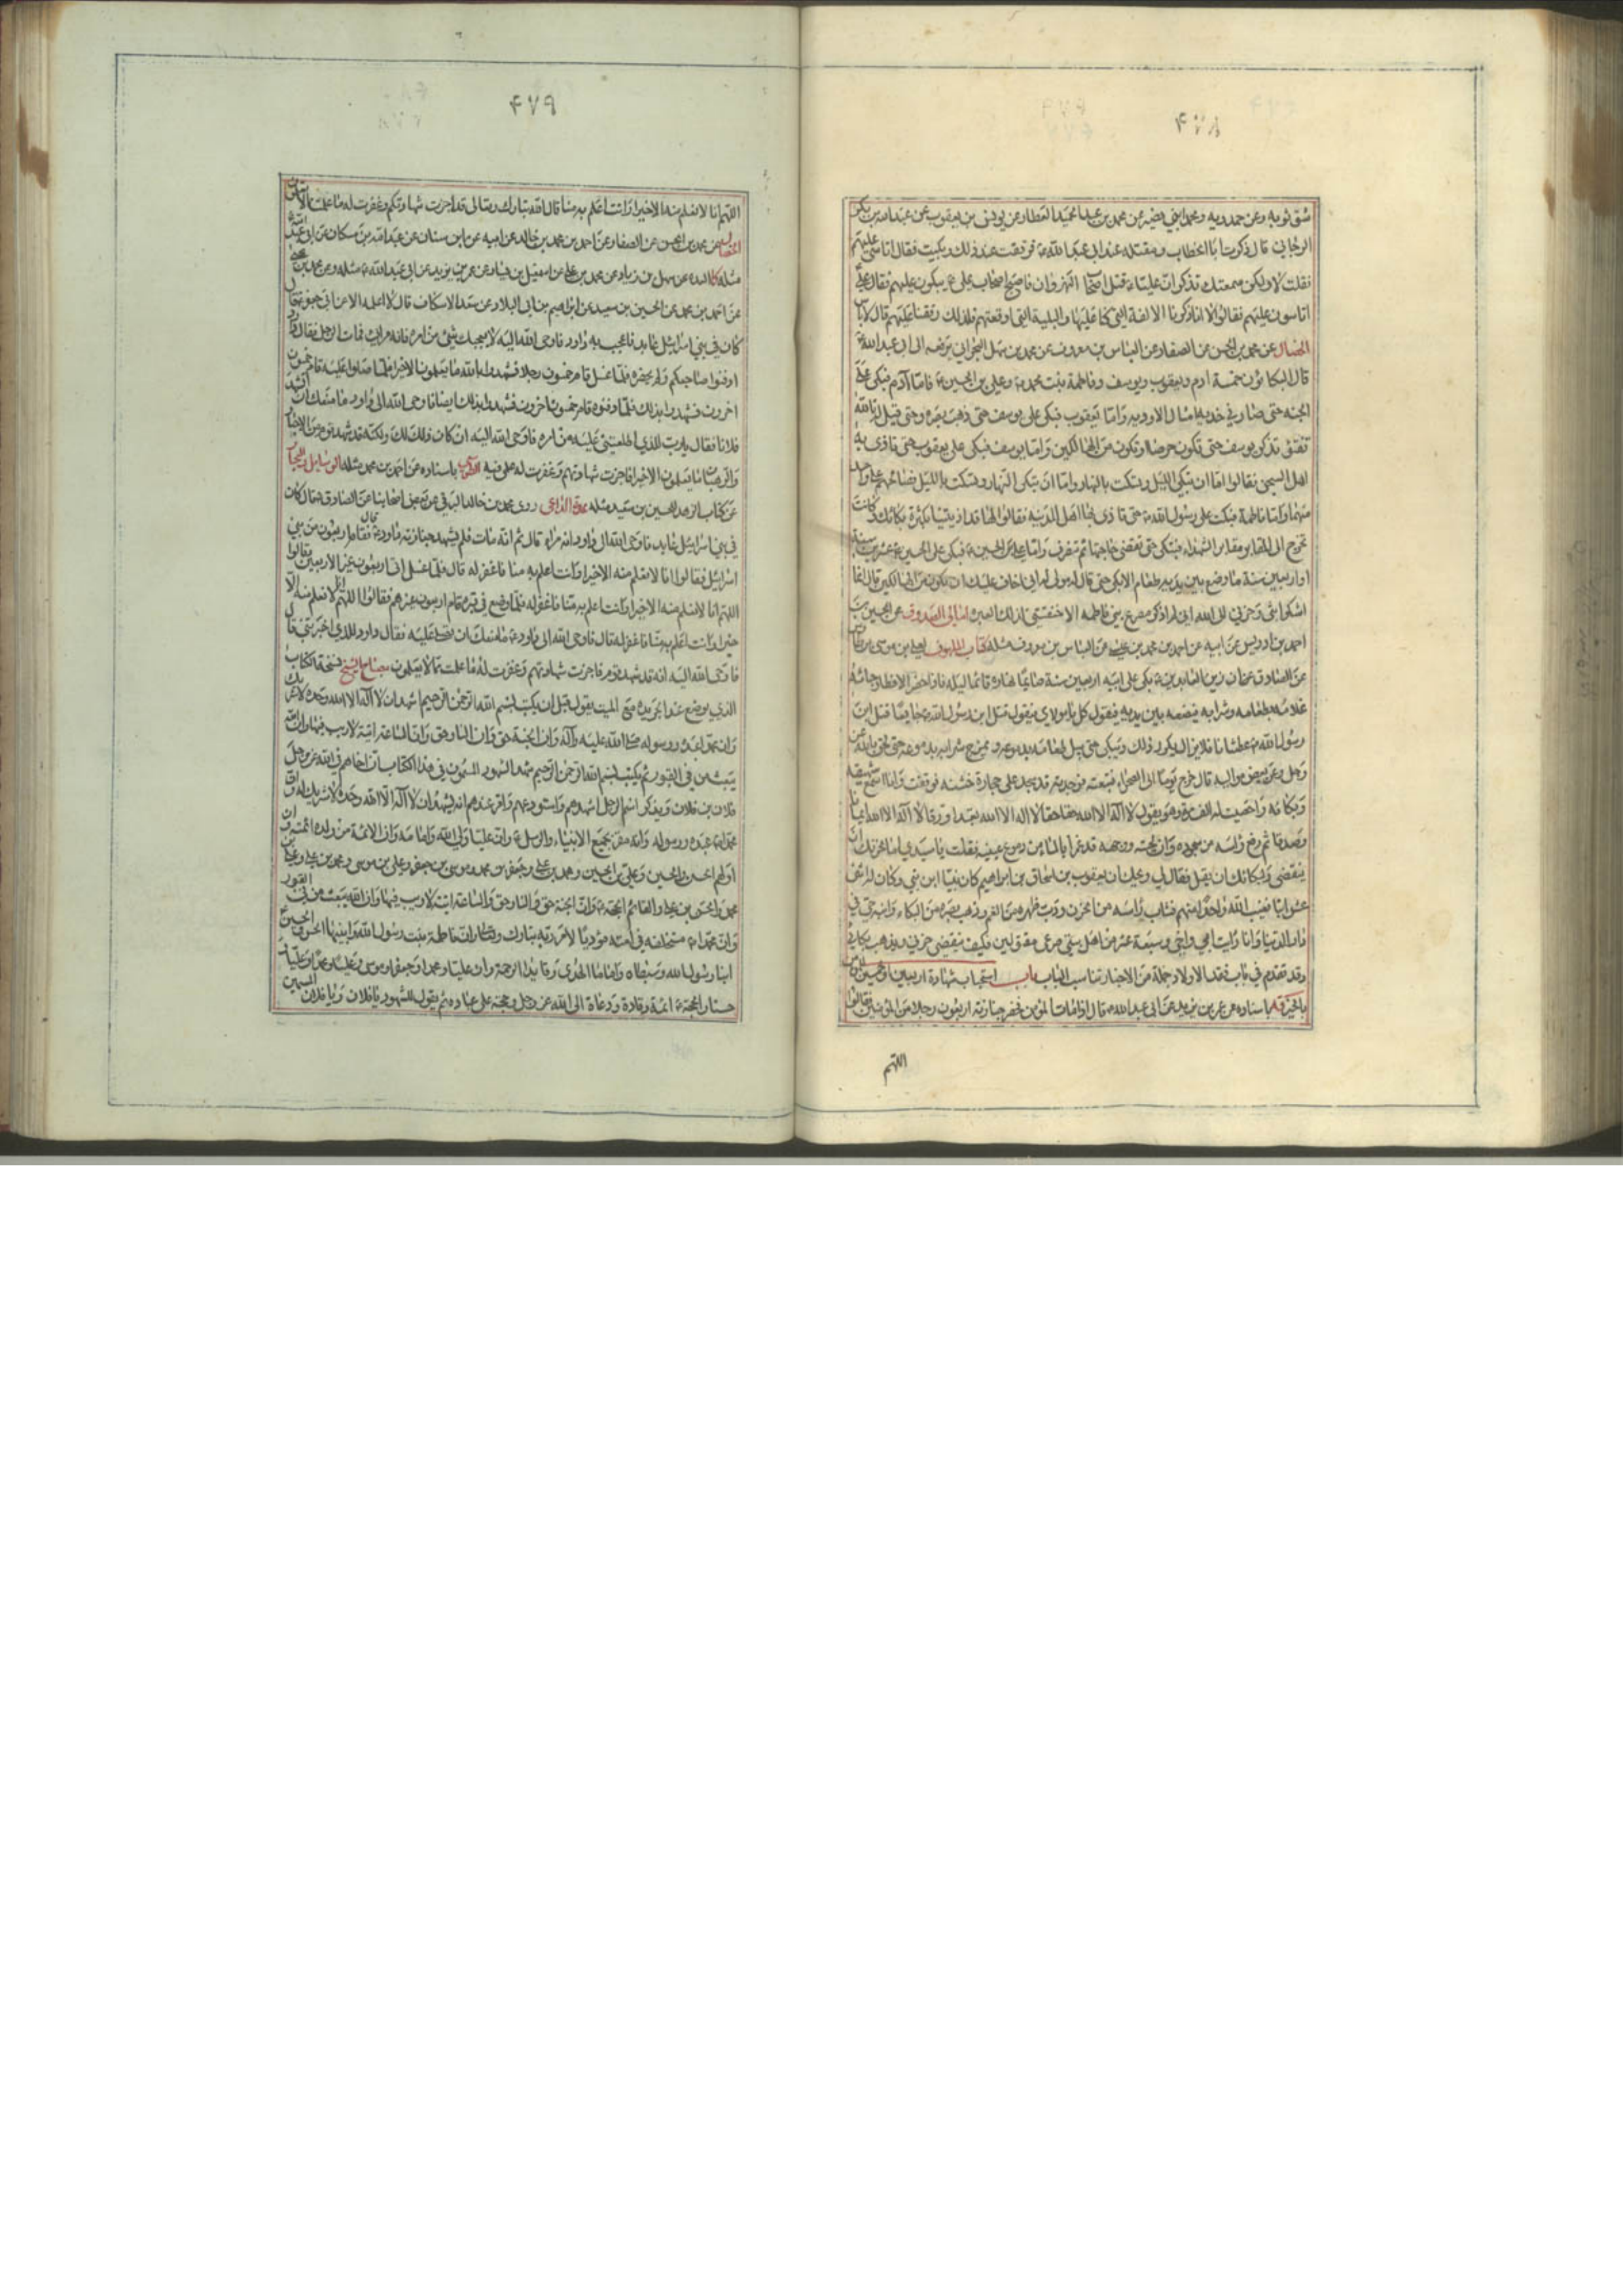 ۴۷۸
شق ثوبه وعن حمدويه ومحمد ابني نصير عن محمد بن عبد الحميد العطار عن يونس بن يعقوب عن عبد الله بن بكير
الرجاني قال ذكرت ابا الخطاب ومقتله عند ابي عبد الله ع فرققت عند ذلك وبكيت فقال اتأسى عليهم
فقلت لا ولكن سمعتك تذكر ان عليا ع قتل اصحاب النهروان فاصبح اصحاب علي ع يبكون عليهم فقال علي
اتاسون عليهم فقالوا لا انا ذكرنا الالفة التي كنا عليها والبلية التي اوقعتهم فلذلك رققنا عليهم قال لا باس
الخصال عن محمد بن الحسن عن الصفار عن العباس بن معروف عن محمد بن سهل البحراني يرفعه الى ابي عبد الله ع
قال البكاؤن خمسة ادم ويعقوب ويوسف وفاطمة بنت محمد ص وعلي بن الحسين ع فاما آدم فبكى على
الجنة حتى صار في خديه امثال الاودية واما يعقوب فبكى على يوسف حتى ذهب بصره وحتى قيل له تالله
تفتؤ تذكر يوسف حتى تكون حرضا او تكون من الهالكين واما يوسف فبكى على يعقوب حتى تاذى به
اهل السجن فقالوا اما ان تبكي الليل وتسكت بالنهار واما ان تبكي النهار وتسكت بالليل فصالحهم على واحد
منهما واما فاطمة فبكت على رسول الله ص حتى تاذى بها اهل المدينة فقالوا لها قد اذيتينا بكثرة بكائك وكانت
تخرج الى المقابر مقابر الشهداء فتبكي حتى تقضي حاجتها ثم تنصرف واما علي بن الحسين ع فبكى على الحسين ع عشرين سنة
او اربعين سنة ما وضع بين يديه طعام الا بكى حتى قال له مولى له اني اخاف عليك ان تكون من الهالكين قال انما
اشكوا بثي وحزني الى الله اني لم اذكر مصرع بني فاطمة الا خنقتني لذلك العبرة امالي الصدوق عن الحسين بن
احمد بن ادريس عن ابيه عن احمد بن محمد بن عيسى عن العباس بن معروف مثله كتاب الملهوف لعلي بن موسى بن طاوس
عن الصادق ع ان زين العابدين ع بكى على ابيه اربعين سنة صائما نهاره قائما ليله فاذا حضر الافطار جائه
غلامه بطعامه وشرابه فيضعه بين يديه فيقول كل يا مولاي فيقول قتل ابن رسول الله ص جايعا قتل ابن
رسول الله ص عطشانا فلا يزال يكرر ذلك ويبكي حتى يبل طعامه بدموعه ويمزج شرابه بدموعه حتى لحق بالله عز
وجل وعن بعض مواليه قال خرج يوما الى الصحراء فتبعته فوجدته قد سجد على حجارة خشنة فوقفت وانا اسمع شهيقه
وبكائه واحصيت له الف مرة وهو يقول لا اله الا الله حقا حقا لا اله الا الله تعبدا ورقا لا اله الا الله ايمانا
وصدقا ثم رفع راسه من سجوده وان لحيته ووجهه قد غمرا بالماء من دموع عينيه فقلت يا سيدي اما لحزنك ان
ينقضي ولبكائك ان يقل فقال لي ويحك ان يعقوب بن اسحاق بن ابراهيم كان نبيا ابن نبي وكان له اثنى
عشر ابنا فغيب الله واحدا منهم فشاب راسه من الحزن واحدودب ظهره من الغم وذهب بصره من البكاء وابنه حي في
دار الدنيا وانا رايت ابي واخي وسبعة عشر من اهل بيتي صرعى مقتولين فكيف ينقضي حزني ويذهب بكائي
وقد تقدم في باب فقد الاولاد جملة من الاخبار تناسب الباب باب استحباب شهادة اربعين او خمسين للمؤمن
بالخير يه باسناده عن عمر بن يزيد عن ابي عبد الله ع قال اذا مات المؤمن فحضر جنازته اربعون رجلا من المؤمنين فقالوا
اللهم
۴۷۹
اللهم انا لا نعلم منه الا خيرا وانت اعلم به منا قال الله تبارك وتعالى قد اجزت شهادتكم وغفرت له ما علمت مما لا تعلمون
الخصال عن محمد بن الحسن عن الصفار عن احمد بن محمد بن خالد عن ابيه عن ابن سنان عن عبد الله بن مسكان عن ابي عبد الله ع
مثله كا العدة عن سهل بن زياد عن محمد بن علي عن اسمعيل بن يسار عن عمر بن يزيد عن ابي عبد الله ع مثله وعن محمد بن يحيى
عن احمد بن محمد عن الحسين بن سعيد عن ابراهيم بن ابي البلاد عن سعد الاسكاف قال لا اعلمه الا عن ابي جعفر ع قال
كان في بني اسرائيل عابد فاعجب به داود فاوحى الله اليه لا يعجبك شيء من امره فانه مراء فمات الرجل فقال داود
ادفنوا صاحبكم ولم يحضره فلما غسل قام خمسون رجلا فشهدوا بالله ما يعلمون الا خيرا فلما صلوا عليه قام خمسون
اخرون فشهدوا بذلك فلما دفنوه قام خمسون اخرون فشهدوا بذلك ايضا فاوحى الله الى داود ما منعك ان تشهد
فلانا فقال يا رب للذي اطلعتني عليه من امره فاوحى الله اليه ان كان ذلك لك ولكنه قد شهد قوم من الاحبار
والرهبان ما يعلمون الا خيرا فاجزت شهادتهم وغفرت له علمي فيه باسناده عن احمد بن محمد مثله
عن كتاب الزهد للحسين بن سعيد مثله عدة الداعي روى محمد بن خالد البرقي عن بعض اصحابنا عن الصادق ع قال كان
في بني اسرائيل عابد فاوحى الله الى داود انه مراء قال ثم انه مات فلم يشهد جنازته داود ع قال فقام اربعون من بني
اسرائيل فقالوا انا لا نعلم منه الا خيرا وانت اعلم به منا فاغفر له قال فلما غسل اتى اربعون غير الاربعين فقالوا
اللهم انا لا نعلم منه الا خيرا وانت اعلم به منا فاغفر له فلما وضع في قبره قام اربعون غيرهم فقالوا اللهم انا لا نعلم منه الا
خيرا وانت اعلم به منا فاغفر له قال فاوحى الله الى داود ع ما منعك ان تصلي عليه فقال داود للذي اخبرتني قال
فاوحى الله اليه انه قد شهد قوم فاجزت شهادتهم وغفرت له ما علمت مما لا يعلمون مصباح الشيخ نسخة الكتاب
الذي يوضع عند الجريدة مع الميت يقول قبل ان يكتب بسم الله الرحمن الرحيم اشهد ان لا اله الا الله وحده لا شريك له
وان محمدا عبده ورسوله صلى الله عليه وآله وان الجنة حق وان النار حق وان الساعة اتية لا ريب فيها وان الله
يبعث من في القبور ثم يكتب بسم الله الرحمن الرحيم شهد الشهود المسمون في هذا الكتاب ان اخاهم في الله عز وجل
فلان بن فلان ويذكر اسم الرجل اشهدهم واستودعهم واقر عندهم انه يشهد ان لا اله الا الله وحده لا شريك له وان
محمدا ص عبده ورسوله وانه مقر بجميع الانبياء والرسل ع وان عليا ولي الله وامامه وان الائمة من ولده ائمته وان
اولهم الحسن والحسين وعلي بن الحسين ومحمد بن علي وجعفر بن محمد وموسى بن جعفر وعلي بن موسى ومحمد بن علي وعلي بن
محمد والحسن بن علي والقائم الحجة ع وان الجنة حق والنار حق والساعة اتية لا ريب فيها وان الله يبعث من في القبور
وان محمدا ص مستخلفه في امته مؤديا لامر ربه تبارك وتعالى وان فاطمة بنت رسول الله وابنيها الحسن والحسين
ابنا رسول الله وسبطاه واماما الهدى وقايدا الرحمة وان عليا ومحمدا وجعفرا وموسى وعليا ومحمدا وعليا
حسنا والحجة ع ائمة وقادة ودعاة الى الله عز وجل وحجة على عباده ثم يقول للشهود يا فلان ويا فلان المسمين